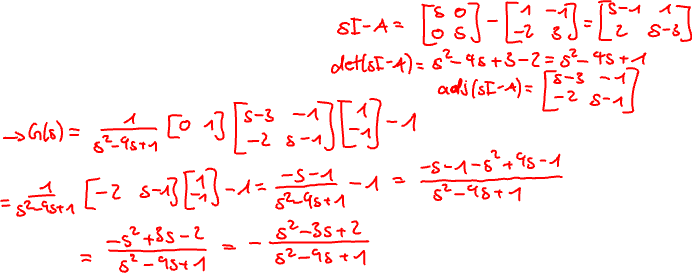 sI-A = [s 0; 0 s] - [1 -1; -2 3] = [s-1 1; 2 s-3]
det(sI-A) = s²-4s+3-2 = s²-4s+1
adj(sI-A) = [s-3 -1; -2 s-1]
→ G(s) = 1/(s²-4s+1) [0 1] [s-3 -1; -2 s-1] [1; -1] - 1
= 1/(s²-4s+1) [-2 s-1] [1; -1] - 1 = (-s-1)/(s²-4s+1) - 1 = (-s-1-s²+4s-1)/(s²-4s+1)
= (-s²+3s-2)/(s²-4s+1) = - (s²-3s+2)/(s²-4s+1)